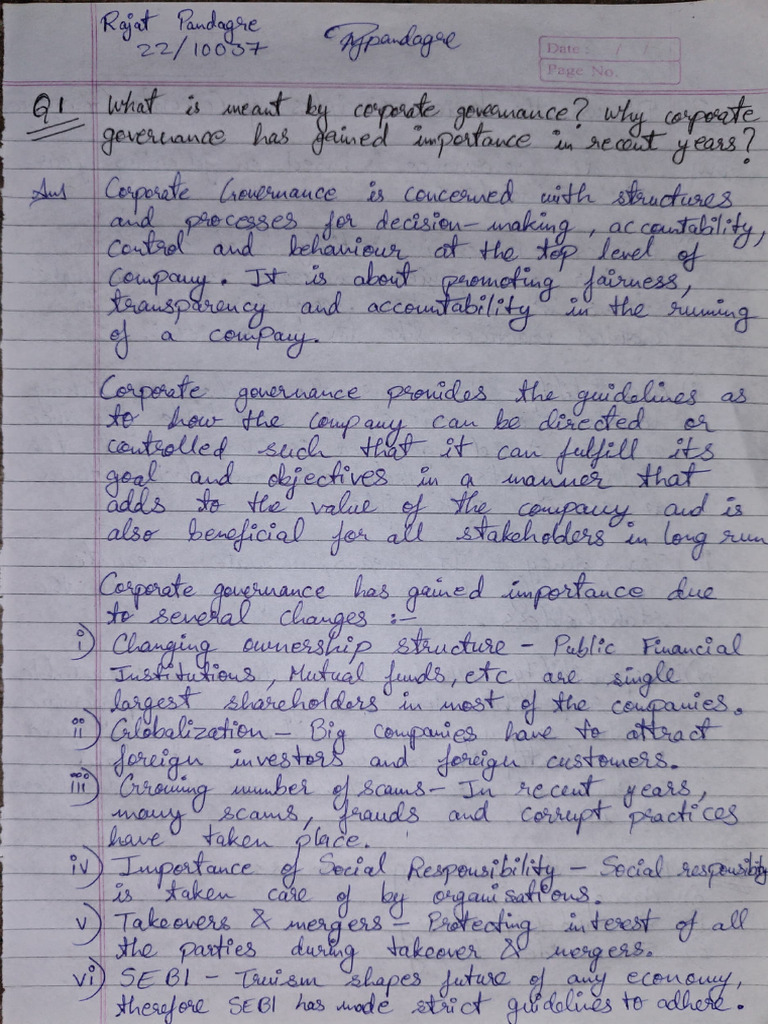 Rajat Pandagre
22/10037
Rjpandagre
Date :
Page No.
Q1 What is meant by corporate governance? Why corporate
governance has gained importance in recent years?
Ans Corporate Governance is concerned with structures
and processes for decision-making, accountability,
control and behaviour at the top level of
company. It is about promoting fairness,
transparency and accountability in the running
of a company.
Corporate governance provides the guidelines as
to how the company can be directed or
controlled such that it can fulfill its
goal and objectives in a manner that
adds to the value of the company and is
also beneficial for all stakeholders in long run
Corporate governance has gained importance due
to several changes :-
i) Changing ownership structure - Public Financial
Institutions, Mutual funds, etc are single
largest shareholders in most of the companies.
ii) Globalization - Big companies have to attract
foreign investors and foreign customers.
iii) Growing number of scams - In recent years,
many scams, frauds and corrupt practices
have taken place.
iv) Importance of Social Responsibility - Social responsibility
is taken care of by organisations.
v) Takeovers & mergers - Protecting interest of all
the parties during takeover & mergers.
vi) SEBI - Truism shapes future of any economy,
therefore SEBI has made strict guidelines to adhere.